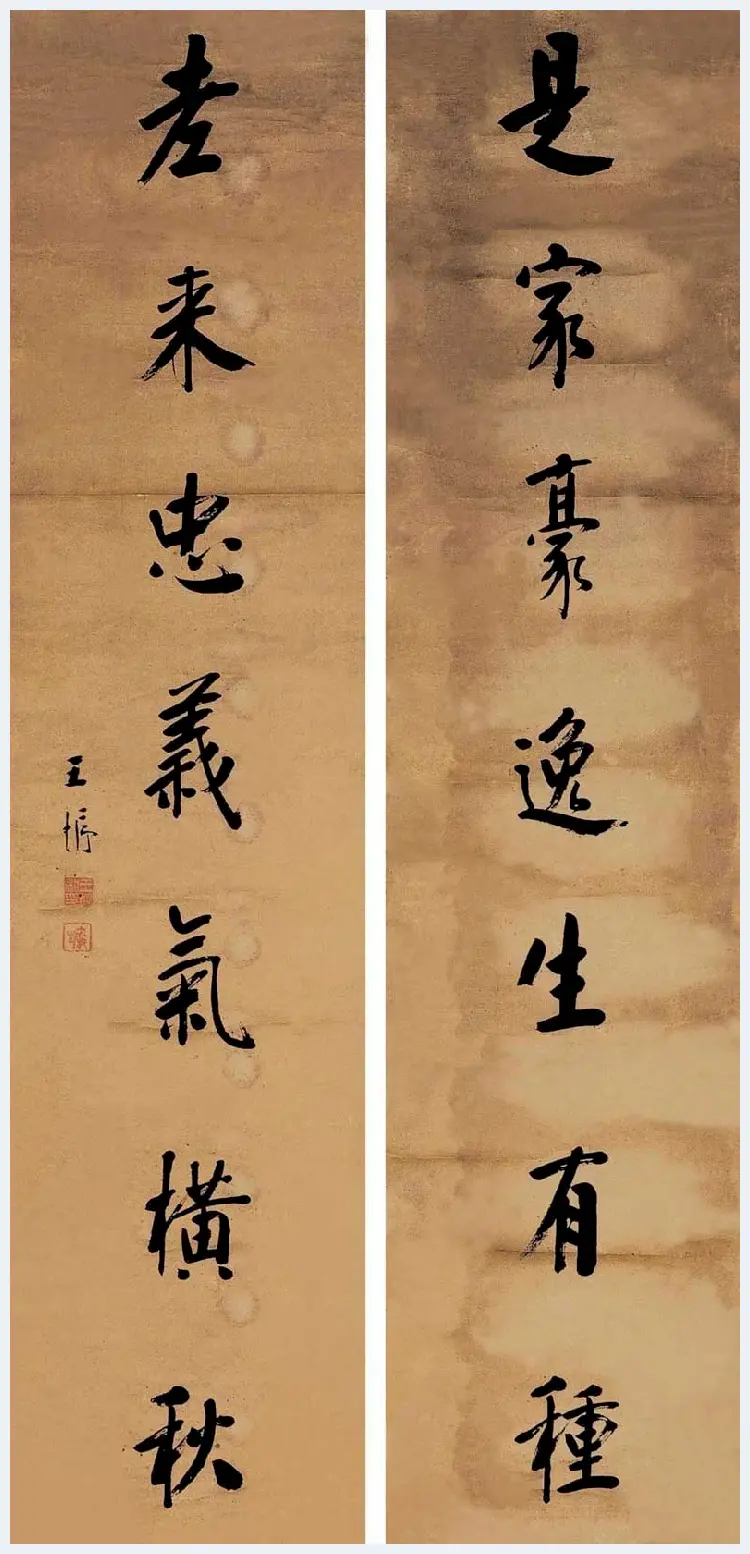 是家豪逸生有種
老來忠義氣橫秋
王